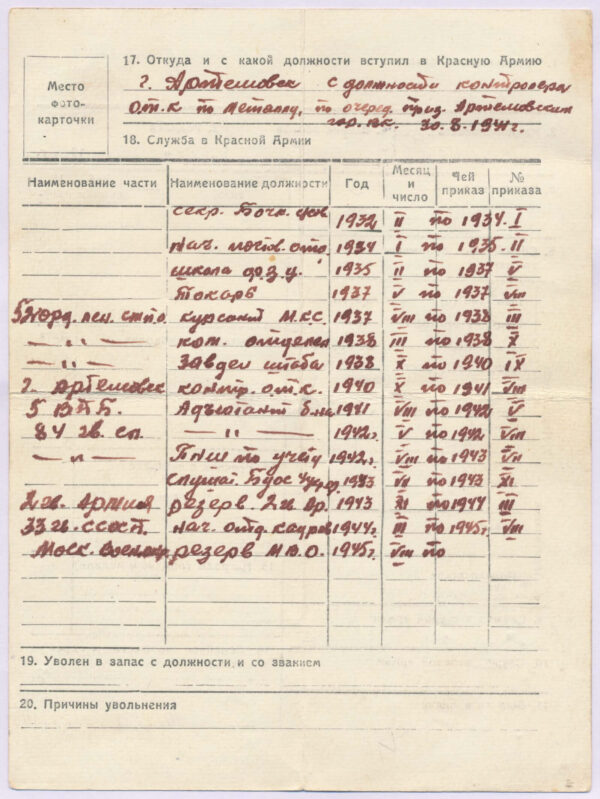 17. Откуда и с какой должности вступил в Красную Армию
г. Артемовск с должности контролера
Место фото-карточки
о.т.к по металлу, по очеред. приз. Артемовским
гор. в.к. 30.8.1941г.
18. Служба в Красной Армии
Наименование части Наименование должности Год Месяц и число Чей приказ № приказа
секр. 1932 II по 1934. I
нач. отд. 1934 I по 1935 II
школа ф.з.у. 1935 II по 1937 V
Токарь 1937 V по 1937 VIII
курсант М.К.С. 1937 VIII по 1938 III
— " — ком. отделен 1938 III по 1938 X
— " — Завдел штаба 1938 X по 1940 IX
г. Артемовск контр. о.т.к. 1940 X по 1941 VIII
5 Адъютант б-на 1941 VIII по 1942 V
84 гв. сп. — " — 1942г. V по 1942 VIII
— " — ПНШ по учету 1942г. VIII по 1943 VII
1943 VII по 1943 XI
2 гв. Армия резерв 2 гв Ар. 1943 XI по 1944 III
33 гв. нач. отд. кадров 1944г. III по 1945г. VIII
Моск. резерв М.В.О. 1945г. VIII по
19. Уволен в запас с должности и со званием
20. Причины увольнения